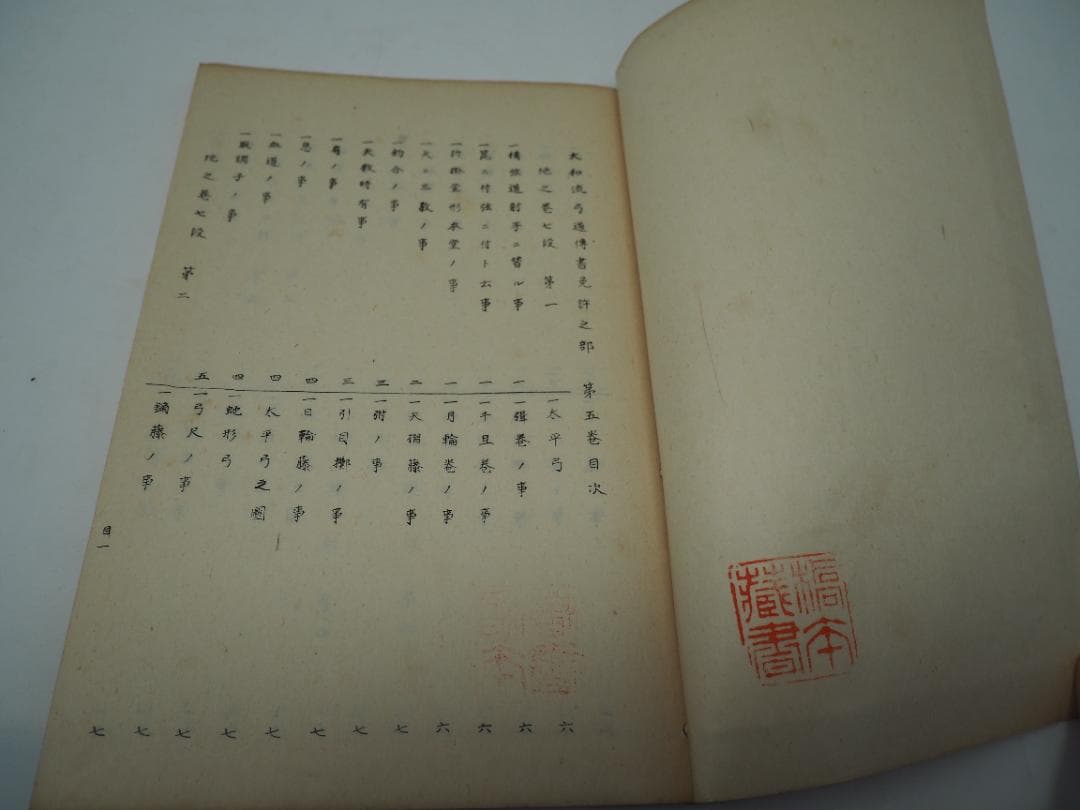 大和流弓道傳書免許之部　第五巻目次
地之巻七段　第一
射手ニ替ル事 一
ニ付弦ニ付ト云事 一
一許掛堂形本堂ノ事 一
数ノ事 二
一的合ノ事 三
一矢数時有事 三
一尋ノ事 四
一息ノ事 四
一血道ノ事 四
調子ノ事 五
地之巻七段　第二
一太平弓 六
一巻ノ事 六
一千旦巻ノ事 六
一月輪巻ノ事 六
一天狗籐ノ事 七
一弣ノ事 七
一引目ノ事 七
一日輪籐ノ事 七
太平弓之圖 七
一蛇形弓 七
一弓尺ノ事 七
一鏑籐ノ事 七
目一
橋本
藏書